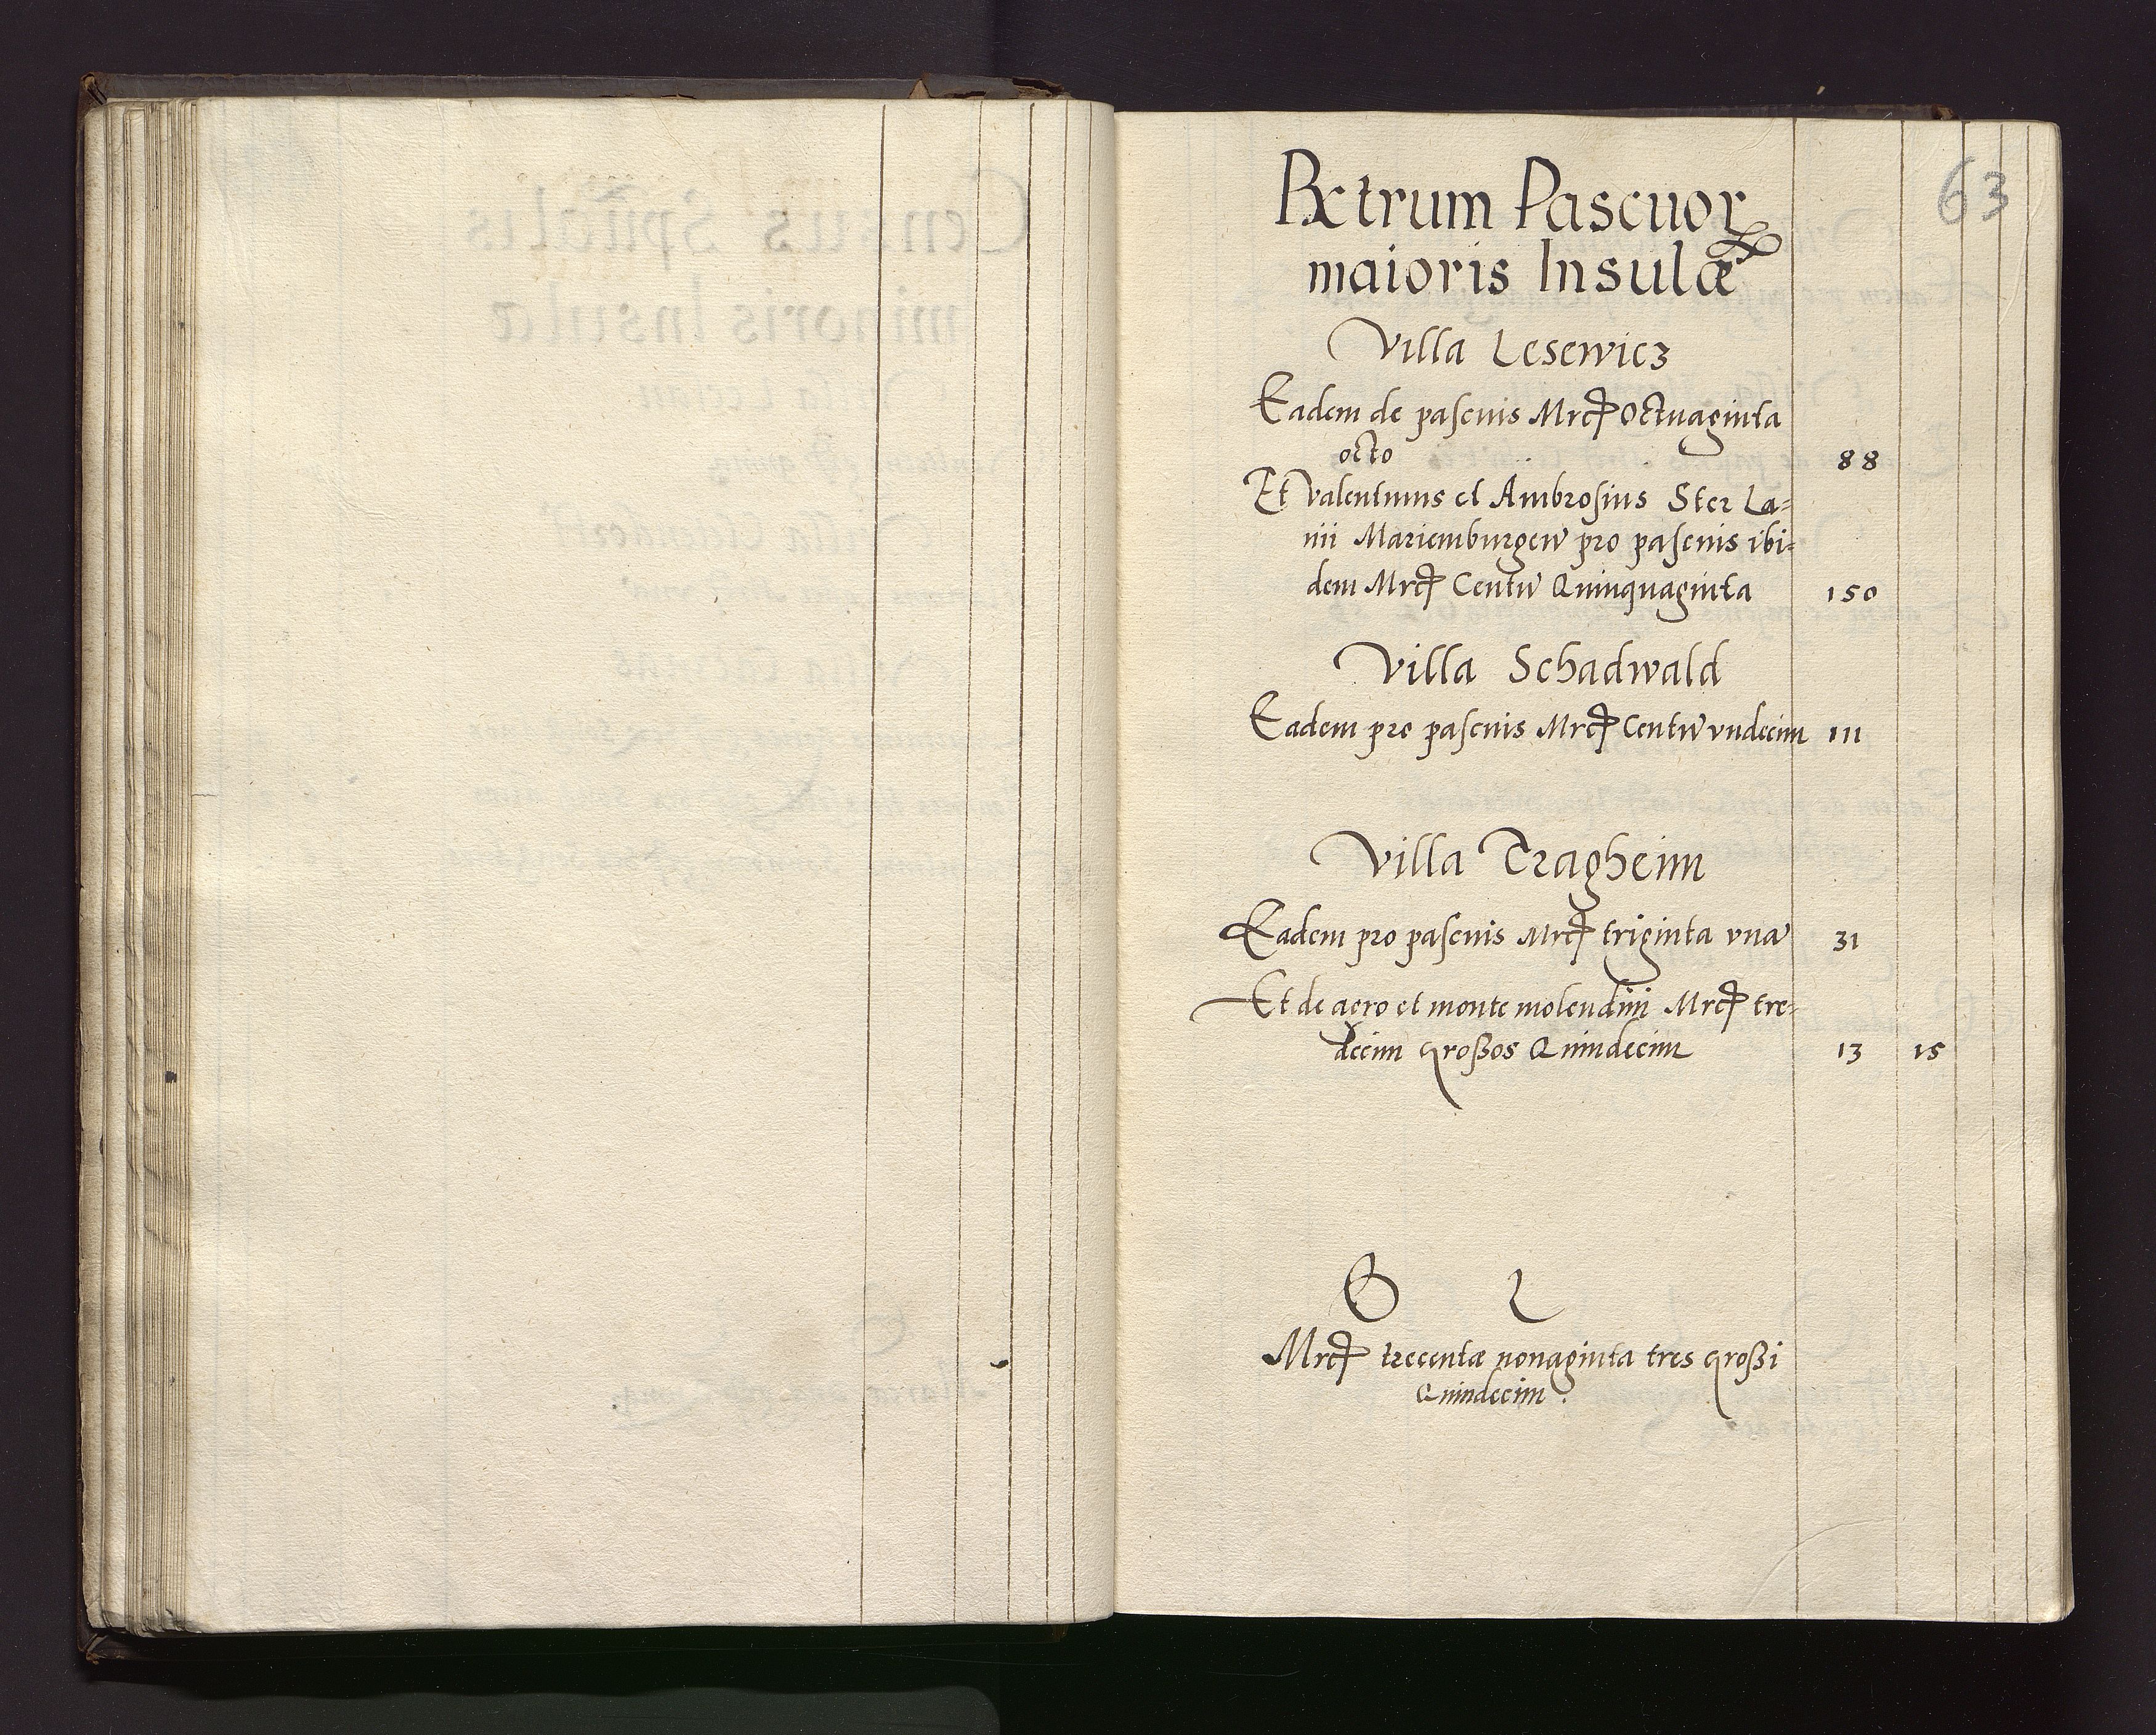 63
Rctrum Pascuor
maioris Insulæ
Villa Lesewicz
Eadem de pascuis Mrc Octuaginta
octo 88
Et Valentinus et Ambrosius Ster La=
nii Mariemburgen pro pascuis ibi=
dem Mrc Centu Quinquaginta 150
Villa Schadwald
Eadem pro pascuis Mrc Centu vndecim 111
Villa Tragheim
Eadem pro pascuis Mrc triginta vna 31
Et de agro et monte molendini Mrc tre=
decim großos Quindecim 13 15
Mrc trecentæ nonaginta tres großi
Quindecim.